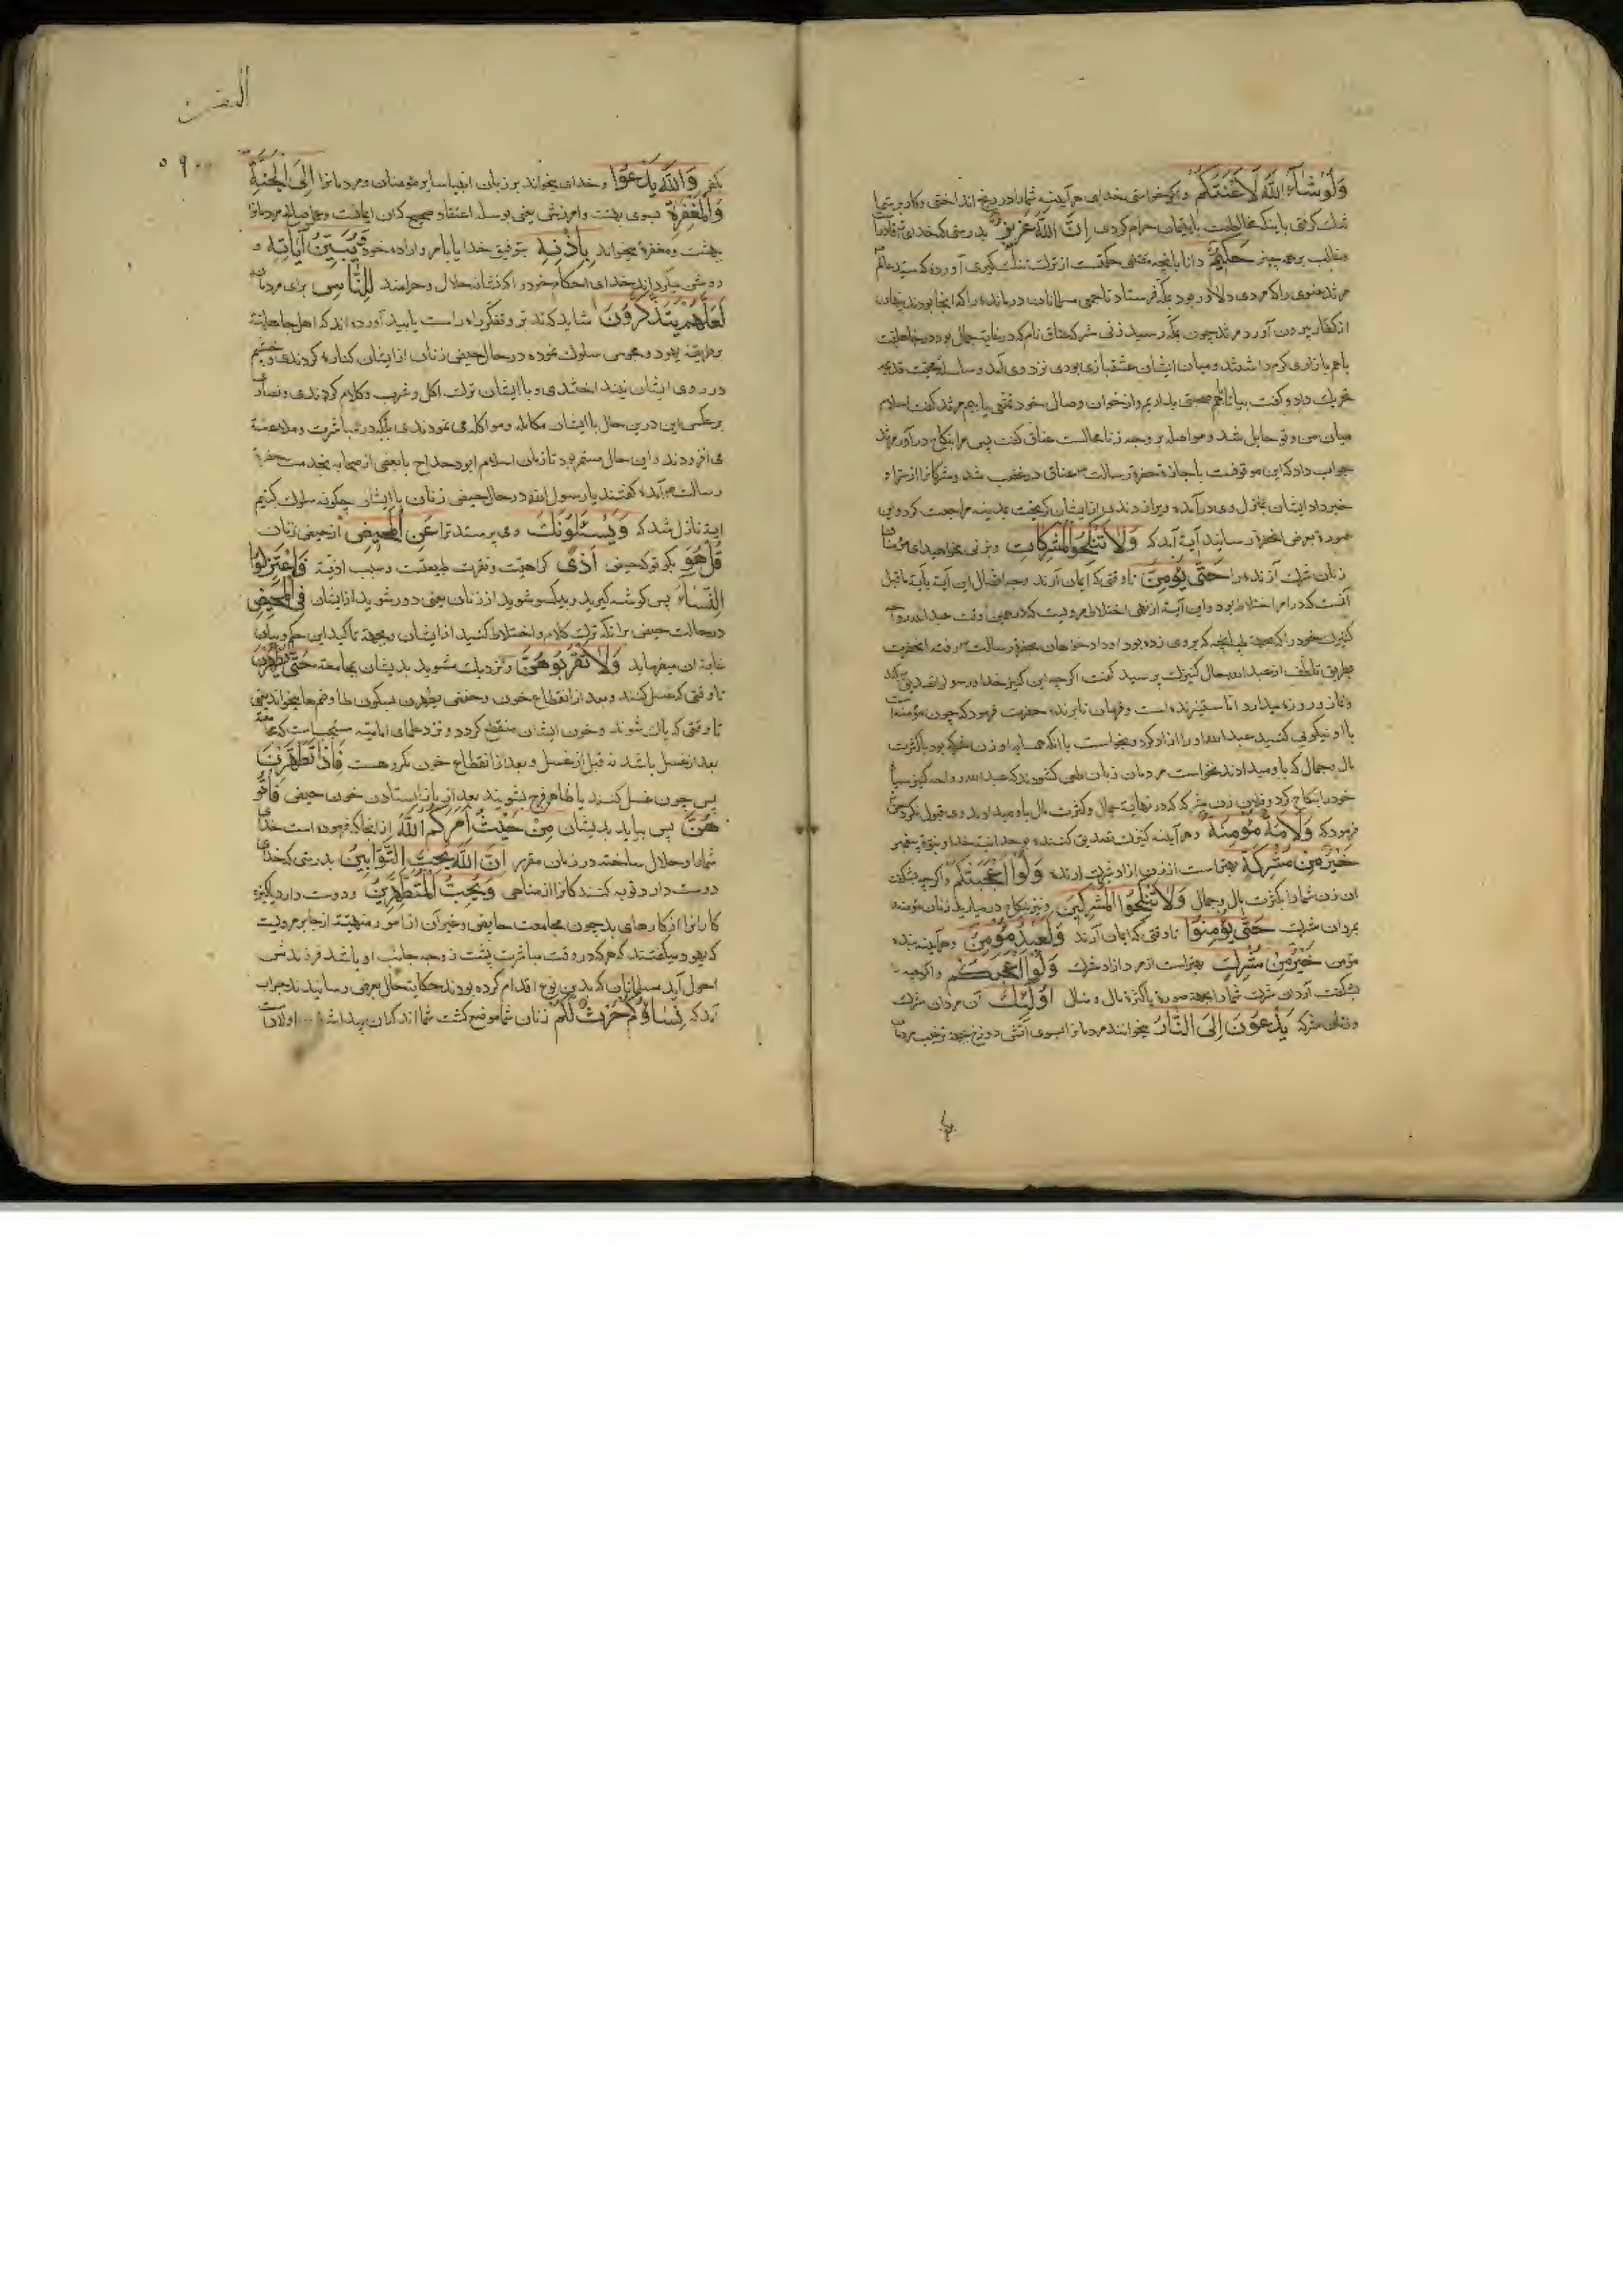 وَلَوْ شَاءَ اللَّهُ لَأَعْنَتَكُمْ و اگر خواستی خدای هر آینه شما را در رنج انداختی و کار بر شما
تنک کرفتی با اینکه مخالطت با یتیمان حرام کردی إِنَّ اللَّهَ عَزِيزٌ بدرستی که خدای تعالی قادر است
و غالب بر همه چیز حَكِيمٌ دانا بآنچه مقتضی حکمتست از ترک تنک کیری آورده که سید عالم
مرثد غنوی را که مردی دلاور بود بمکه فرستاد تا جمعی مسلمانان درمانده را که آنجا بودند پنهان
از کفار بیرون آورد مرثد چون بمکه رسید زنی مشرکه عناق نام که در غایت جمال بود و در جاهلیت
باهم بازاری کرم داشتند و میان ایشان عشقبازی بودی نزد وی آمد و سلسله محبت قدیم
تحریک داد و گفت بیا تا باهم صحبتی بداریم و از خوان وصال خود تمتعی یابیم مرثد گفت اسلام
میان من و تو حایل شد و مواصله بر وجه زنا محالست عناق گفت پس مرا بنکاح در آور مرثد
جواب داد که این موقوفست باجازه حضرت رسالت عناق در غضب شد و مشرکانرا از سر او
خبر داد ایشان بمنزل وی در آمده ویرا زدند وی از ایشان کریخت بمدینه مراجعت کرد و این
صورة بعرض آنحضرت رسانید آیه آمد که وَلَا تَنْكِحُوا الْمُشْرِكَاتِ و بزنی مخواهید ای مؤمنان
زنان شرک آرنده را حَتَّى يُؤْمِنَّ تا وقتی که ایمان آرند وجه اتصال این آیه بآیه ماقبل
آنست که در امر اختلاط بود و این آیه از نهی اختلاط مرویست که در همین وقت عبدالله رواحه
کنیزک خود را بجهت طپانچه که بر وی زده بود او داد خواهان بحضرت رسالت رفته آنحضرت
بطریق تلطف از عبدالله حال کنیزک پرسید گفت اگرچه این کنیز خدا و رسول را تصدیق میکند
و نماز و روزه میدارد اما ستیزنده است و فرمان نابرنده حضرت فرمود که چون مؤمنه است
با او نیکویی کنید عبدالله او را آزاد کرد و بخواست با آنکه همسایه او زن مشرکه بود با کثرت
مال و جمال که باو میدادند نخواست مردمان زبان طعن کشودند که عبدالله رواحه کنیز سیاه
خود را بنکاح کرد و فلان زن مشرکه که در نهایت جمال و کثرت مال باو میدادند وی قبول نکرد حق
فرمود که وَلَأَمَةٌ مُؤْمِنَةٌ و هر آینه کنیزک تصدیق کننده بوحدانیت خدا و نبوة پیغمبر
خَيْرٌ مِنْ مُشْرِكَةٍ بهتر است از زن آزاد شرک آرنده وَلَوْ أَعْجَبَتْكُمْ و اگرچه بشکفت
آن زن شما را بکثرت مال و جمال وَلَا تُنْكِحُوا الْمُشْرِكِينَ و نیز بنکاح در میارید زنان مؤمنه
بمردان مشرک حَتَّى يُؤْمِنُوا تا وقتی که ایمان آرند وَلَعَبْدٌ مُؤْمِنٌ و هر آینه بنده
مؤمن خَيْرٌ مِنْ مُشْرِكٍ بهتر است از مرد آزاد مشرک وَلَوْ أَعْجَبَكُمْ و اگرچه
بشکفت آرد آن مشرک شما را بجهت صورة یا کثرة مال و منال أُولَئِكَ آن مردان مشرک
و زنان مشرکه يَدْعُونَ إِلَى النَّارِ میخوانند مردمانرا بسوی آتش دوزخ بجهت ترغیب مردمان
البقرة
۵۹
بکفر وَاللَّهُ يَدْعُوا و خدای میخواند بر زبان انبیا سایر مؤمنان و مردمانرا إِلَى الْجَنَّةِ
وَالْمَغْفِرَةِ بسوی بهشت و آمرزش یعنی بوسیله اعتقاد صحیح که آن ایمانست و عمل صالح مردمانرا
بهشت و مغفرة میخواند بِإِذْنِهِ بتوفیق خدا یا بامر و اراده خود وَيُبَيِّنُ آيَاتِهِ و
روشن میکرداند خدای احکام خود را که نشان حلال و حرامند لِلنَّاسِ برای مردمان
لَعَلَّهُمْ يَتَذَكَّرُونَ شاید که تدبر و تفکر راه راست یابید آورده اند که اهل جاهلیت
بطریقه یهود و مجوس سلوک نموده در حال حیض زنان از ایشان کناره کردندی و چشم
در روی ایشان نینداختندی و با ایشان ترک اکل و شرب و کلام کردندی و نصارا
بر عکس این درین حال با ایشان مکالمه و مواکله می نمودندی بلکه در مباشرت و ملاعبت
می افزودند و این حال مستمر بود تا زمان اسلام ابو دحداح با بعضی از صحابه بخدمت حضرة
رسالت آمده گفتند یا رسول الله در حال حیض زنان با ایشان چکونه سلوک کنیم
آیة نازل شد که وَيَسْئَلُونَكَ و می پرسند ترا عَنِ الْمَحِيضِ از حیض زنان
قُلْ هُوَ بکو تو که حیض أَذًى کراهیت و نفرت طبیعتست و سبب اذیت فَاعْتَزِلُوا
النِّسَاءَ پس کوشه کیرید و بیکسو شوید از زنان یعنی دور شوید از ایشان فِي الْمَحِيضِ
در حالت حیض نه آنکه ترک کلام و اختلاط کنید از ایشان و بجهت تاکید این حکم و بیان
غایت آن میفرماید وَلَا تَقْرَبُوهُنَّ و نزدیک مشوید بدیشان بمجامعت حَتَّى يَطْهُرْنَ
تا وقتی که غسل کنند و بعد از انقطاع خون و حفص یطهرن بسکون طا و ضم ها میخواند یعنی
تا وقتی که پاک شوند و خون ایشان منقطع کردد و نزد علمای امامیه مستحب است که مجامعت
بعد از غسل باشد نه قبل از غسل و بعد از انقطاع خون مکروهست فَإِذَا تَطَهَّرْنَ
پس چون غسل کنند یا ظاهر فرج بشویند بعد از باز ایستادن خون حیض فَأْتُو
هُنَّ پس بیاید بدیشان مِنْ حَيْثُ أَمَرَكُمُ اللَّهُ از آنجا که فرموده است خدای
شما را و حلال ساخته در زمان مقرر إِنَّ اللَّهَ يُحِبُّ التَّوَّابِينَ بدرستی که خدای
دوست دارد توبه کنندکانرا از مناهی وَيُحِبُّ الْمُتَطَهِّرِينَ و دوست دارد پاکیزه
کارانرا از کارهای بد چون مجامعت حایض و غیر آن از امور منهیّه از جابر مرویست
که یهود میکفتند که هر که در وقت مباشرت پشت زوجه جانب او باشد فرزندش
احول آید مسلمانان که بدین نوع اقدام کرده بودند حکایت حال بعرض رسانیدند جواب
آمد که نِسَاؤُكُمْ حَرْثٌ لَكُمْ زنان شما موضع کشت شمااند که از آن پیدا شد اولاد